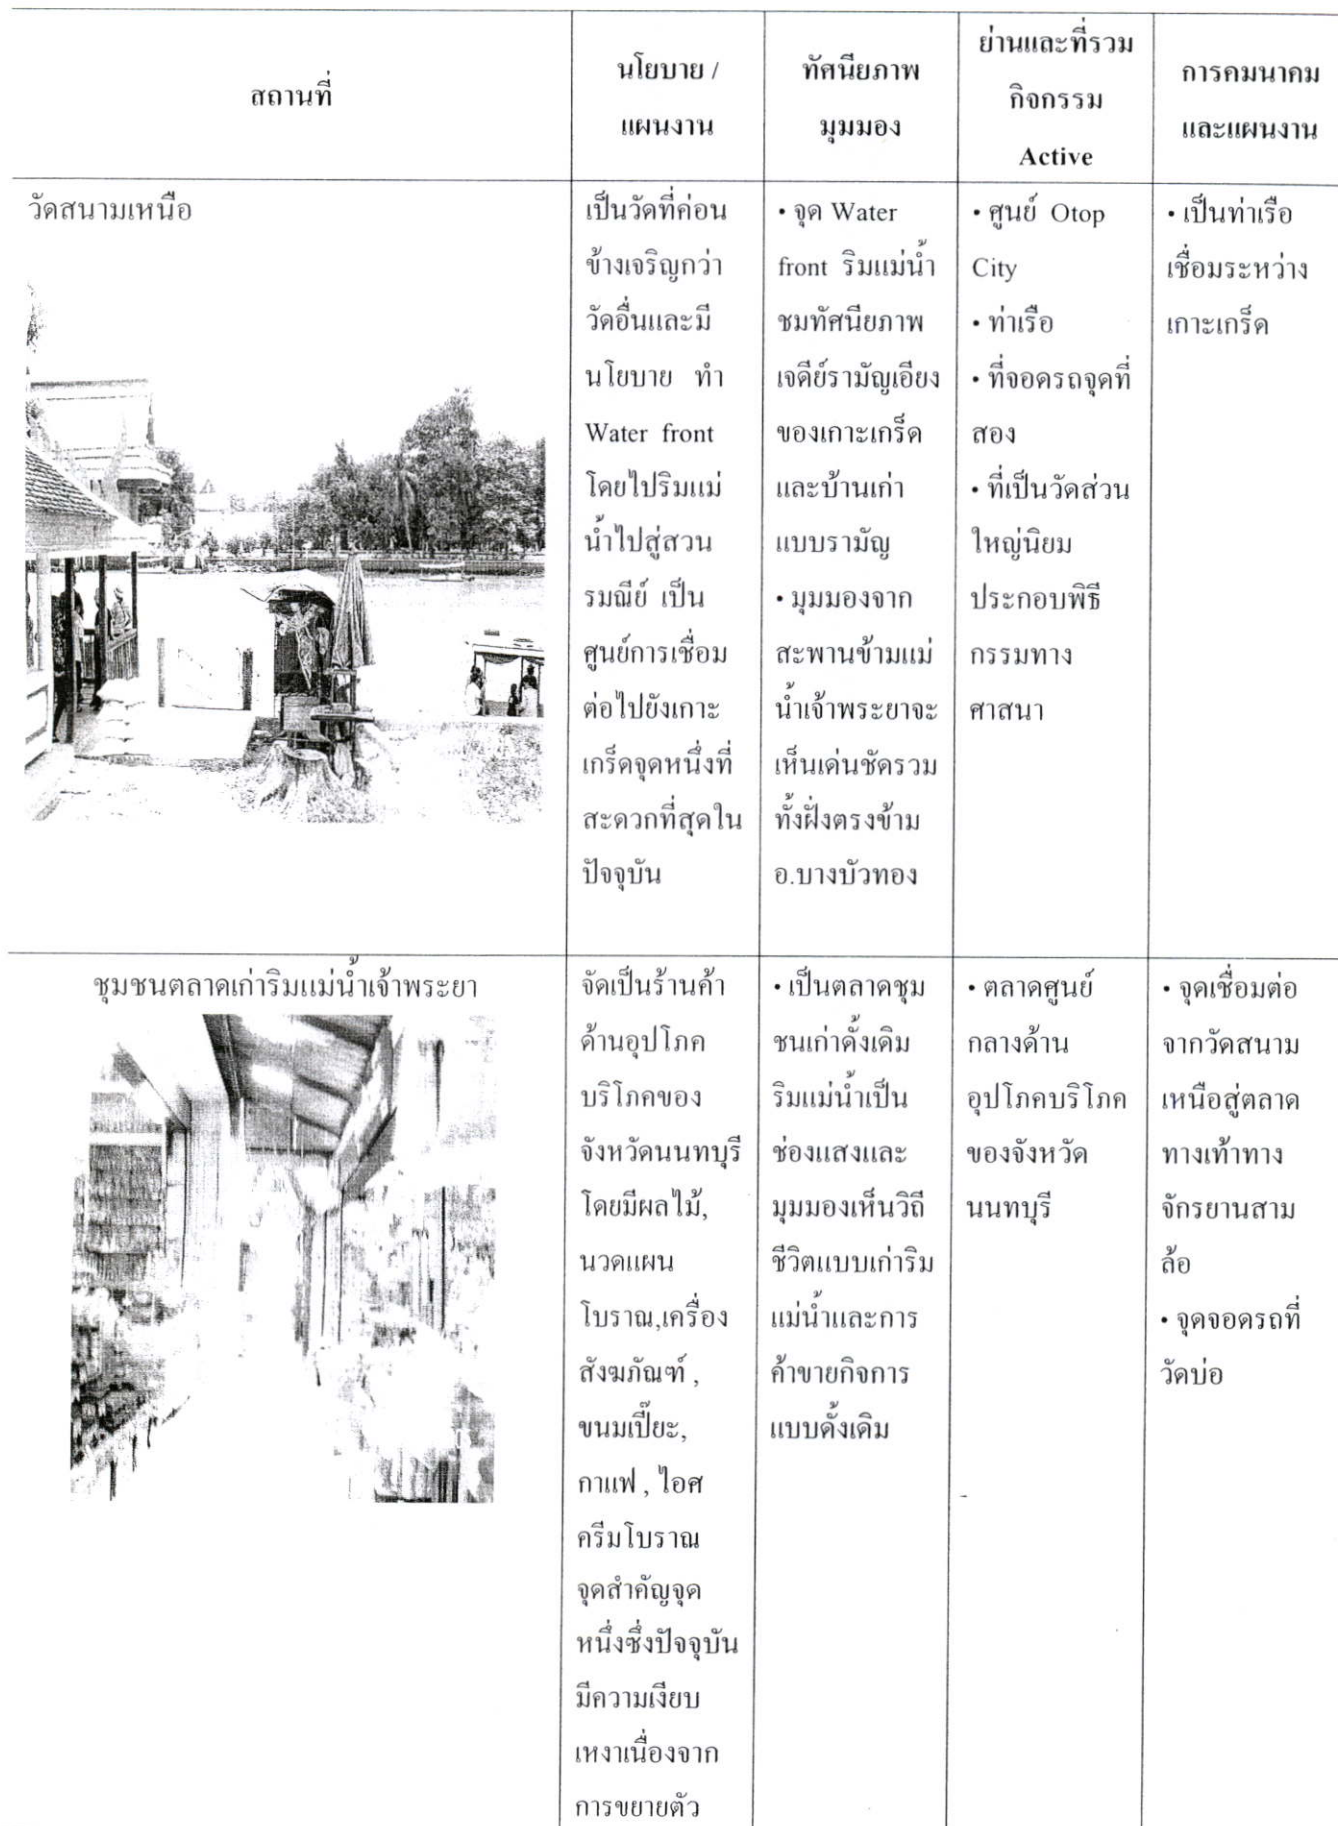 สถานที่
นโยบาย /
แผนงาน
ทัศนียภาพ
มุมมอง
ย่านและที่รวม
กิจกรรม
Active
การคมนาคม
และแผนงาน
วัดสนามเหนือ
เป็นวัดที่ค่อน
ข้างเจริญกว่า
วัดอื่นและมี
นโยบาย ทำ
Water front
โดยไปริมแม่
น้ำไปสู่สวน
รมณีย์ เป็น
ศูนย์การเชื่อม
ต่อไปยังเกาะ
เกร็ดจุดหนึ่งที่
สะดวกที่สุดใน
ปัจจุบัน
• จุด Water
front ริมแม่น้ำ
ชมทัศนียภาพ
เจดีย์รามัญเอียง
ของเกาะเกร็ด
และบ้านเก่า
แบบรามัญ
• มุมมองจาก
สะพานข้ามแม่
น้ำเจ้าพระยาจะ
เห็นเด่นชัดรวม
ทั้งฝั่งตรงข้าม
อ.บางบัวทอง
• ศูนย์ Otop
City
• ท่าเรือ
• ที่จอดรถจุดที่
สอง
• ที่เป็นวัดส่วน
ใหญ่นิยม
ประกอบพิธี
กรรมทาง
ศาสนา
• เป็นท่าเรือ
เชื่อมระหว่าง
เกาะเกร็ด
ชุมชนตลาดเก่าริมแม่น้ำเจ้าพระยา
จัดเป็นร้านค้า
ด้านอุปโภค
บริโภคของ
จังหวัดนนทบุรี
โดยมีผลไม้,
นวดแผน
โบราณ,เครื่อง
สังฆภัณฑ์ ,
ขนมเปี๊ยะ,
กาแฟ , ไอศ
ครีมโบราณ
จุดสำคัญจุด
หนึ่งซึ่งปัจจุบัน
มีความเงียบ
เหงาเนื่องจาก
การขยายตัว
• เป็นตลาดชุม
ชนเก่าดั้งเดิม
ริมแม่น้ำเป็น
ช่องแสงและ
มุมมองเห็นวิถี
ชีวิตแบบเก่าริม
แม่น้ำและการ
ค้าขายกิจการ
แบบดั้งเดิม
• ตลาดศูนย์
กลางด้าน
อุปโภคบริโภค
ของจังหวัด
นนทบุรี
• จุดเชื่อมต่อ
จากวัดสนาม
เหนือสู่ตลาด
ทางเท้าทาง
จักรยานสาม
ล้อ
• จุดจอดรถที่
วัดบ่อ